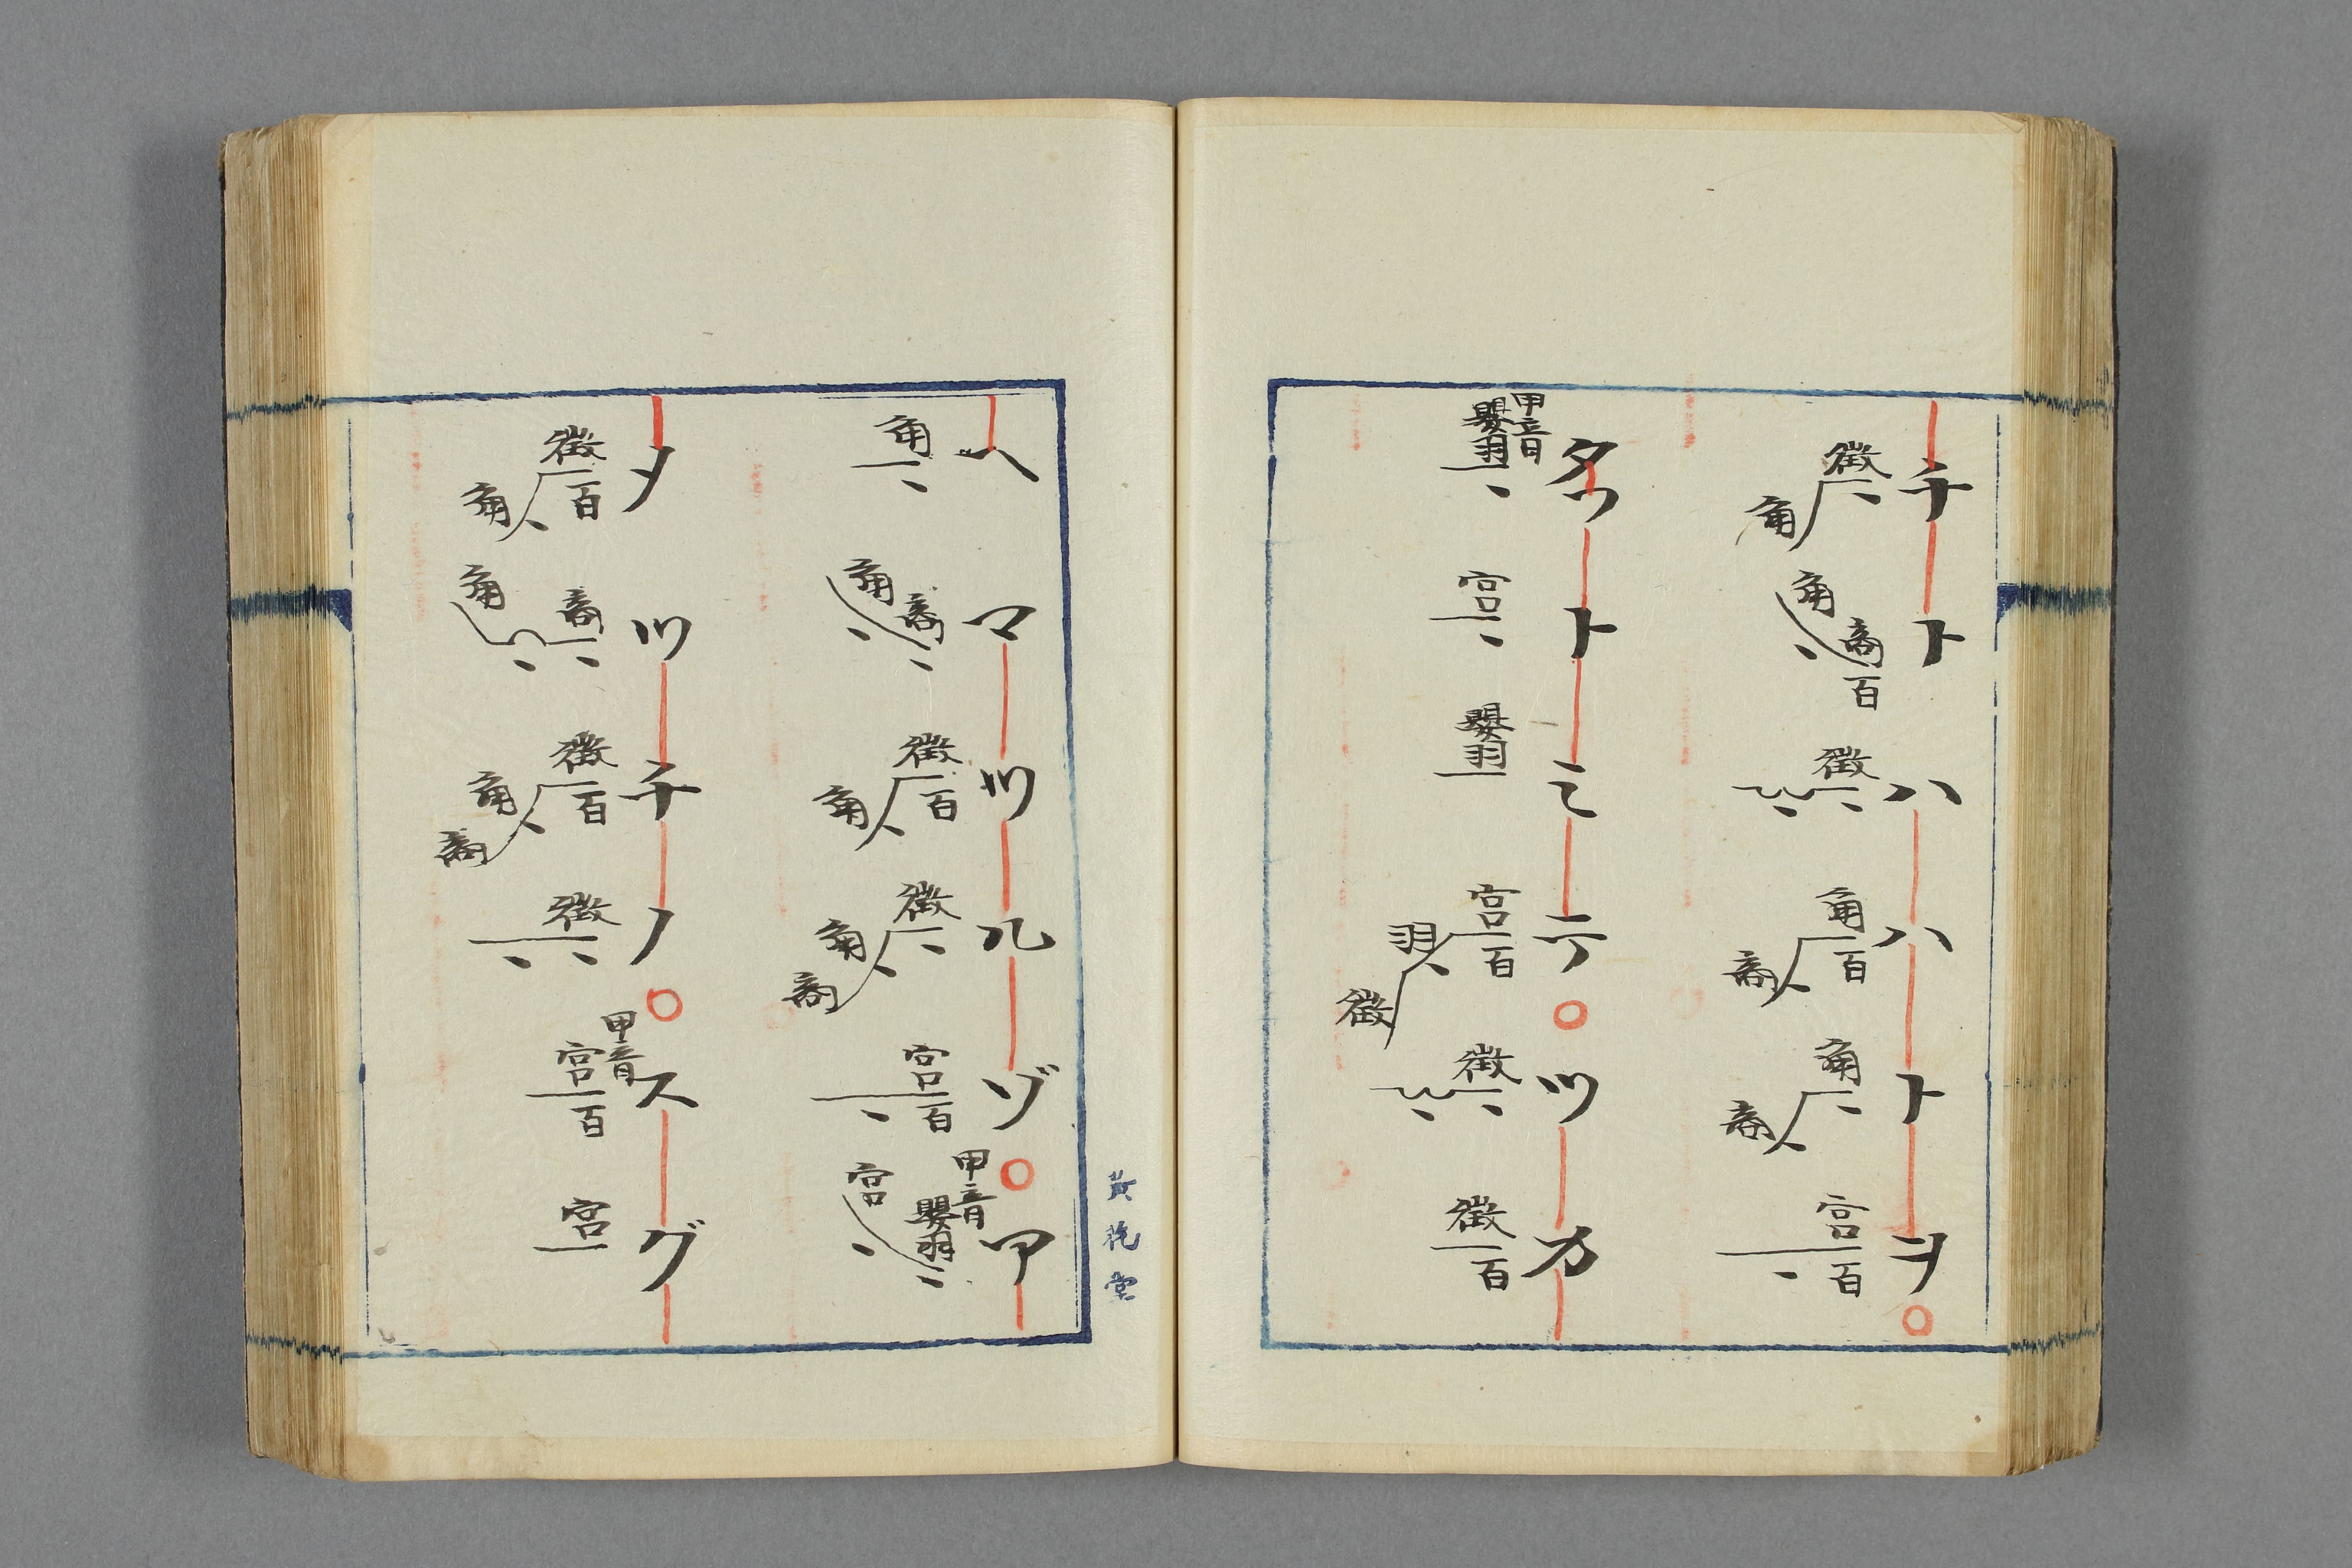 チトハハトヲ
徴角商角百徴角百商角商宮百
タツトミテツカ
甲音
嬰羽宮嬰羽宮百羽徴徴徴百
ヘマツルゾア
角商角徴百角徴角商宮百甲音嬰羽宮
メツチノスグ
徴百角商角徴百角商徴甲音宮百宮